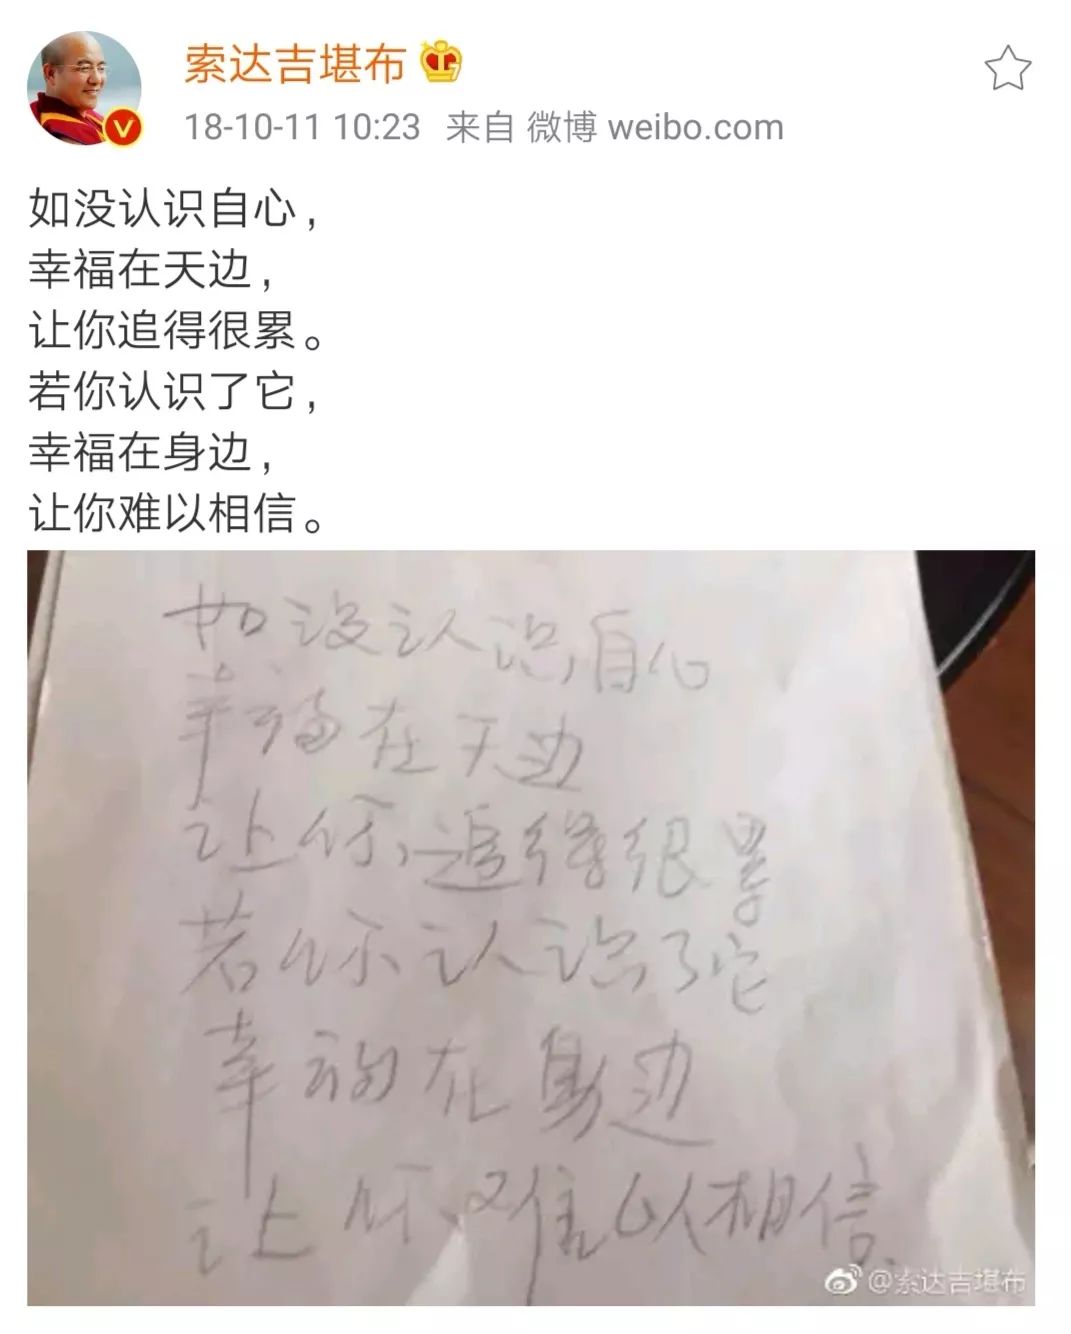 索达吉堪布
18-10-11 10:23 来自 微博 weibo.com
如没认识自心，
幸福在天边，
让你追得很累。
若你认识了它，
幸福在身边，
让你难以相信。
如没认识自心
幸福在天边
让你追得很累
若你认识了它
幸福在身边
让你难以相信
@索达吉堪布